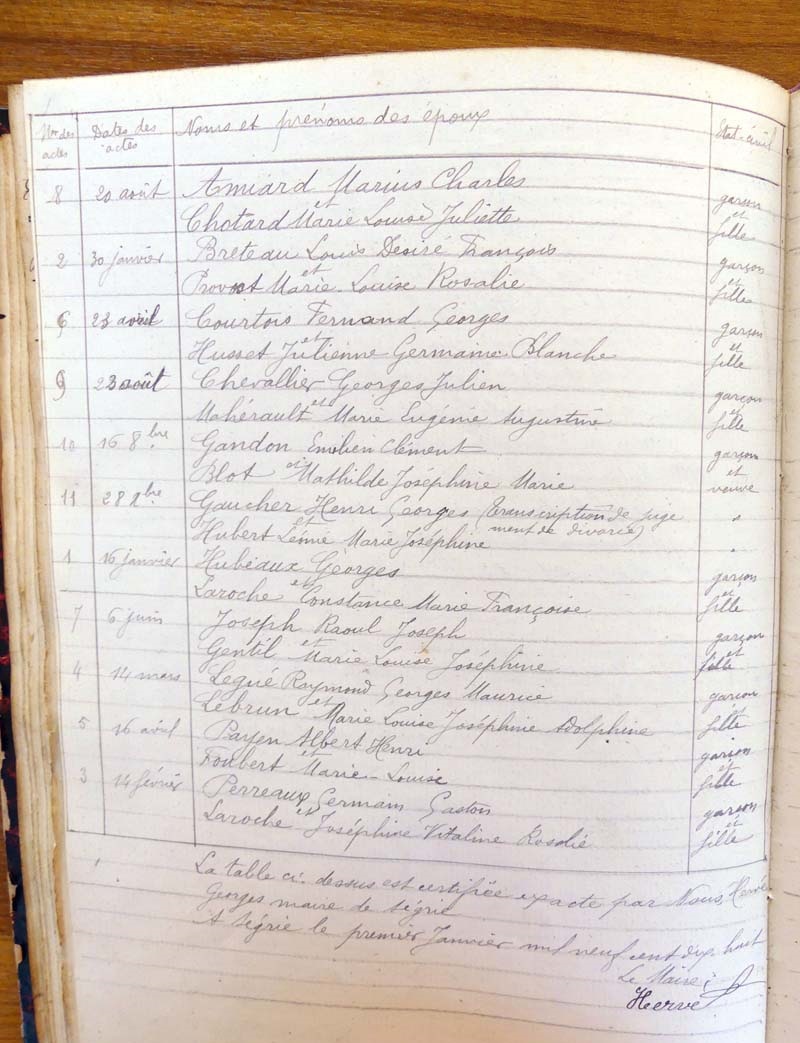 Nos des actes Dates des actes Noms et prénoms des époux Etat-civil
8 20 août Amiard Marius Charles garçon
et et
Chotard Marie Louise Juliette fille
2 30 janvier Breteau Louis Desiré François garçon
et et
Provost Marie-Louise Rosalie fille
6 23 avril Courtois Fernand Georges garçon
et et
Husset Julienne Germaine Blanche fille
9 23 août Chevallier Georges Julien garçon
et et
Mahérault Marie Eugénie Augustine fille
10 16 8bre Gandon Emilien Clément garçon
et et
Blot Mathilde Joséphine Marie veuve
11 28 Xbre Gaucher Henri Georges (Transcription de juge "
et ment de divorce)
Hubert Léonie Marie Joséphine "
1 16 janvier Hubéaux Georges garçon
et et
Laroche Constance Marie Françoise fille
7 6 juin Joseph Raoul Joseph garçon
et et
Gentil Marie Louise Joséphine fille
4 14 mars Legué Raymond Georges Maurice garçon
et et
Lebrun Marie Louise Joséphine Adolphine fille
5 16 avril Payen Albert Henri garçon
et et
Foubert Marie-Louise fille
3 14 février Perreaux Germain Gaston garçon
et et
Laroche Joséphine Vitaline Rosalie fille
La table ci-dessus est certifiée exacte par Nous, Hervé
Georges maire de Ségrie
A Ségrie le premier Janvier mil neuf cent dix huit
Le Maire :
Hervé